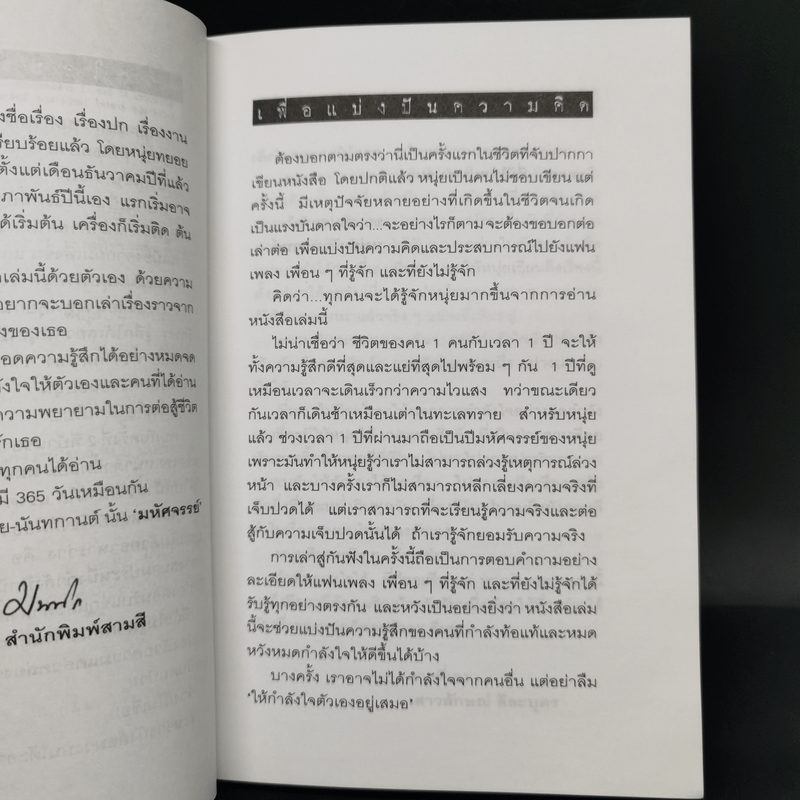 งชื่อเรื่อง เรื่องปก เรื่องงาน
รียบร้อยแล้ว โดยหนุ่ยทยอย
ตั้งแต่เดือนธันวาคมปีที่แล้ว
ภาพันธ์ปีนี้เอง แรกเริ่มอาจ
ด้เริ่มต้น เครื่องก็เริ่มติด ต้น
เล่มนี้ด้วยตัวเอง ด้วยความ
อยากจะบอกเล่าเรื่องราวจาก
งของเธอ
อดความรู้สึกได้อย่างหมดจด
ังใจให้ตัวเองและคนที่ได้อ่าน
ความพยายามในการต่อสู้ชีวิต
ักเธอ
ทุกคนได้อ่าน
มี 365 วันเหมือนกัน
ย-นันทกานต์ นั้น ‘มหัศจรรย์’
สำนักพิมพ์สามสี
เพื่อแบ่งปันความคิด
ต้องบอกตามตรงว่านี่เป็นครั้งแรกในชีวิตที่จับปากกา
เขียนหนังสือ โดยปกติแล้ว หนุ่ยเป็นคนไม่ชอบเขียน แต่
ครั้งนี้ มีเหตุปัจจัยหลายอย่างที่เกิดขึ้นในชีวิตจนเกิด
เป็นแรงบันดาลใจว่า...จะอย่างไรก็ตาม จะต้องขอบอกต่อ
เล่าต่อ เพื่อแบ่งปันความคิดและประสบการณ์ไปยังแฟน
เพลง เพื่อน ๆ ที่รู้จัก และที่ยังไม่รู้จัก
คิดว่า...ทุกคนจะได้รู้จักหนุ่ยมากขึ้นจากการอ่าน
หนังสือเล่มนี้
ไม่น่าเชื่อว่า ชีวิตของคน 1 คนกับเวลา 1 ปี จะให้
ทั้งความรู้สึกดีที่สุดและแย่ที่สุดไปพร้อม ๆ กัน 1 ปีที่ดู
เหมือนเวลาจะเดินเร็วกว่าความไวแสง ทว่าขณะเดียว
กันเวลาก็เดินช้าเหมือนเต่าในทะเลทราย สำหรับหนุ่ย
แล้ว ช่วงเวลา 1 ปีที่ผ่านมาถือเป็นปีมหัศจรรย์ของหนุ่ย
เพราะมันทำให้หนุ่ยรู้ว่าเราไม่สามารถล่วงรู้เหตุการณ์ล่วง
หน้า และบางครั้งเราก็ไม่สามารถหลีกเลี่ยงความจริงที่
เจ็บปวดได้ แต่เราสามารถที่จะเรียนรู้ความจริงและต่อ
สู้กับความเจ็บปวดนั้นได้ ถ้าเรารู้จักยอมรับความจริง
การเล่าสู่กันฟังในครั้งนี้ถือเป็นการตอบคำถามอย่าง
ละเอียดให้แฟนเพลง เพื่อน ๆ ที่รู้จัก และที่ยังไม่รู้จักได้
รับรู้ทุกอย่างตรงกัน และหวังเป็นอย่างยิ่งว่า หนังสือเล่ม
นี้จะช่วยแบ่งปันความรู้สึกของคนที่กำลังท้อแท้และหมด
หวังหมดกำลังใจให้ดีขึ้นได้บ้าง
บางครั้ง เราอาจไม่ได้กำลังใจจากคนอื่น แต่อย่าลืม
‘ให้กำลังใจตัวเองอยู่เสมอ’